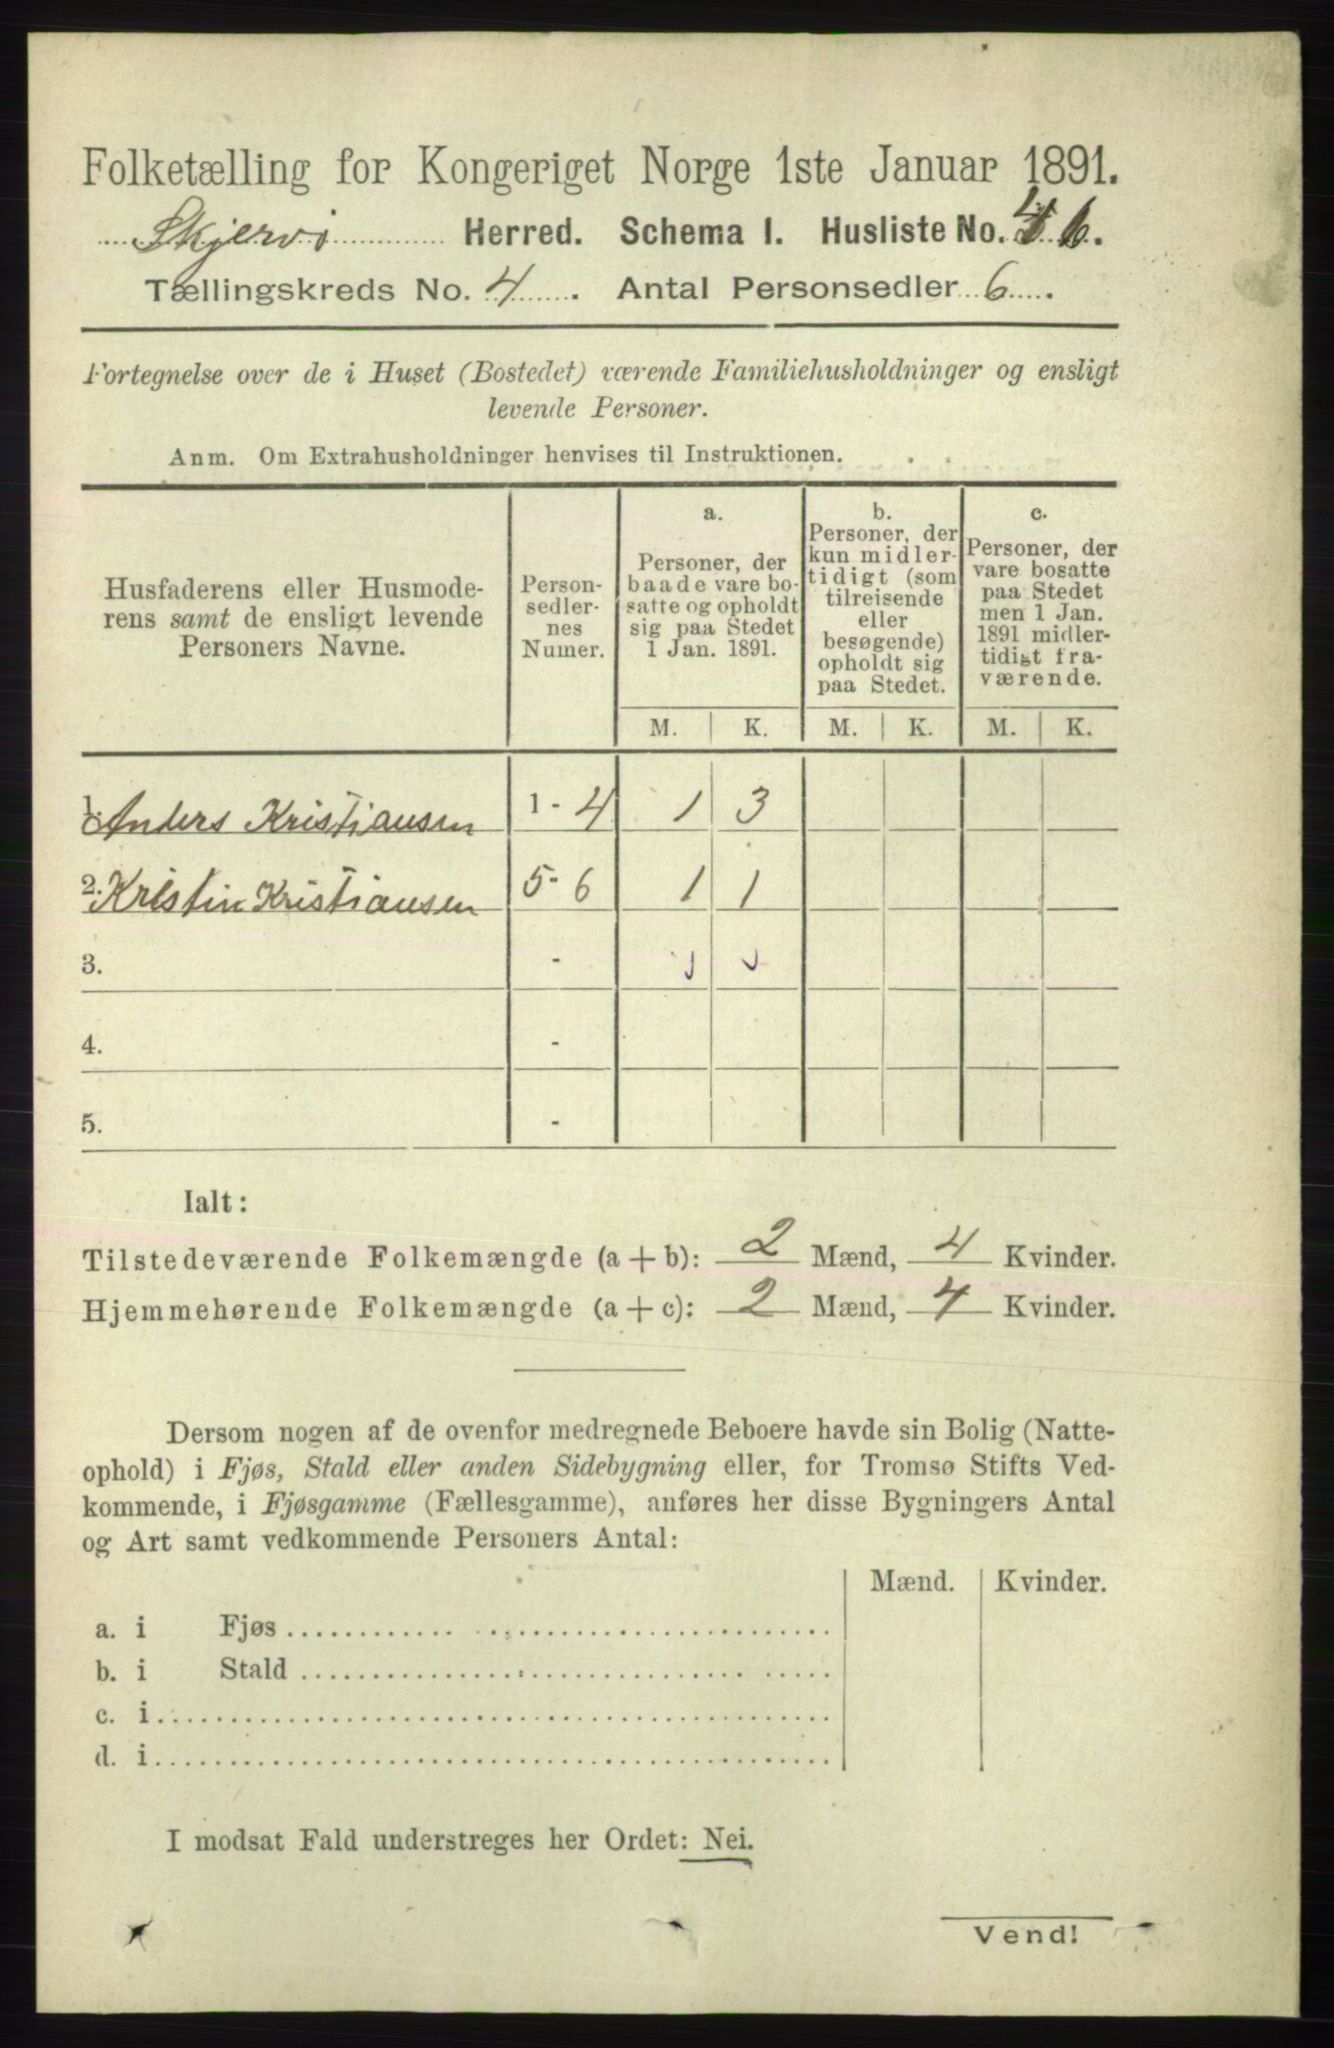 Folketælling for Kongeriget Norge 1ste Januar 1891.
Skjervö Herred. Schema 1. Husliste No. 46.
Tællingskreds No. 4. Antal Personsedler 6.
Fortegnelse over de i Huset (Bostedet) værende Familiehusholdninger og ensligt
levende Personer.
Anm. Om Extrahusholdninger henvises til Instruktionen.
Husfaderens eller Husmode-
rens samt de ensligt levende
Personers Navne.
Person-
sedler-
nes
Numer.
a.
Personer, der
baade vare bo-
satte og opholdt
sig paa Stedet
1 Jan. 1891.
b.
Personer, der
kun midler-
tidigt (som
tilreisende
eller
besøgende)
opholdt sig
paa Stedet.
c.
Personer, der
vare bosatte
paa Stedet
men 1 Jan.
1891 midler-
tidigt fra-
værende.
M. K. M. K. M. K.
1. Anders Kristiansen 1 - 4 1 3
2. Kristin Kristiansen 5 - 6 1 1
3. -
4. -
5. -
Ialt:
Tilstedeværende Folkemængde (a + b): 2 Mænd, 4 Kvinder.
Hjemmehørende Folkemængde (a + c): 2 Mænd, 4 Kvinder.
Dersom nogen af de ovenfor medregnede Beboere havde sin Bolig (Natte-
ophold) i Fjøs, Stald eller anden Sidebygning eller, for Tromsø Stifts Ved-
kommende, i Fjøsgamme (Fællesgamme), anføres her disse Bygningers Antal
og Art samt vedkommende Personers Antal:
Mænd. Kvinder.
a. i Fjøs
b. i Stald
c. i
d. i
I modsat Fald understreges her Ordet: Nei.
Vend!